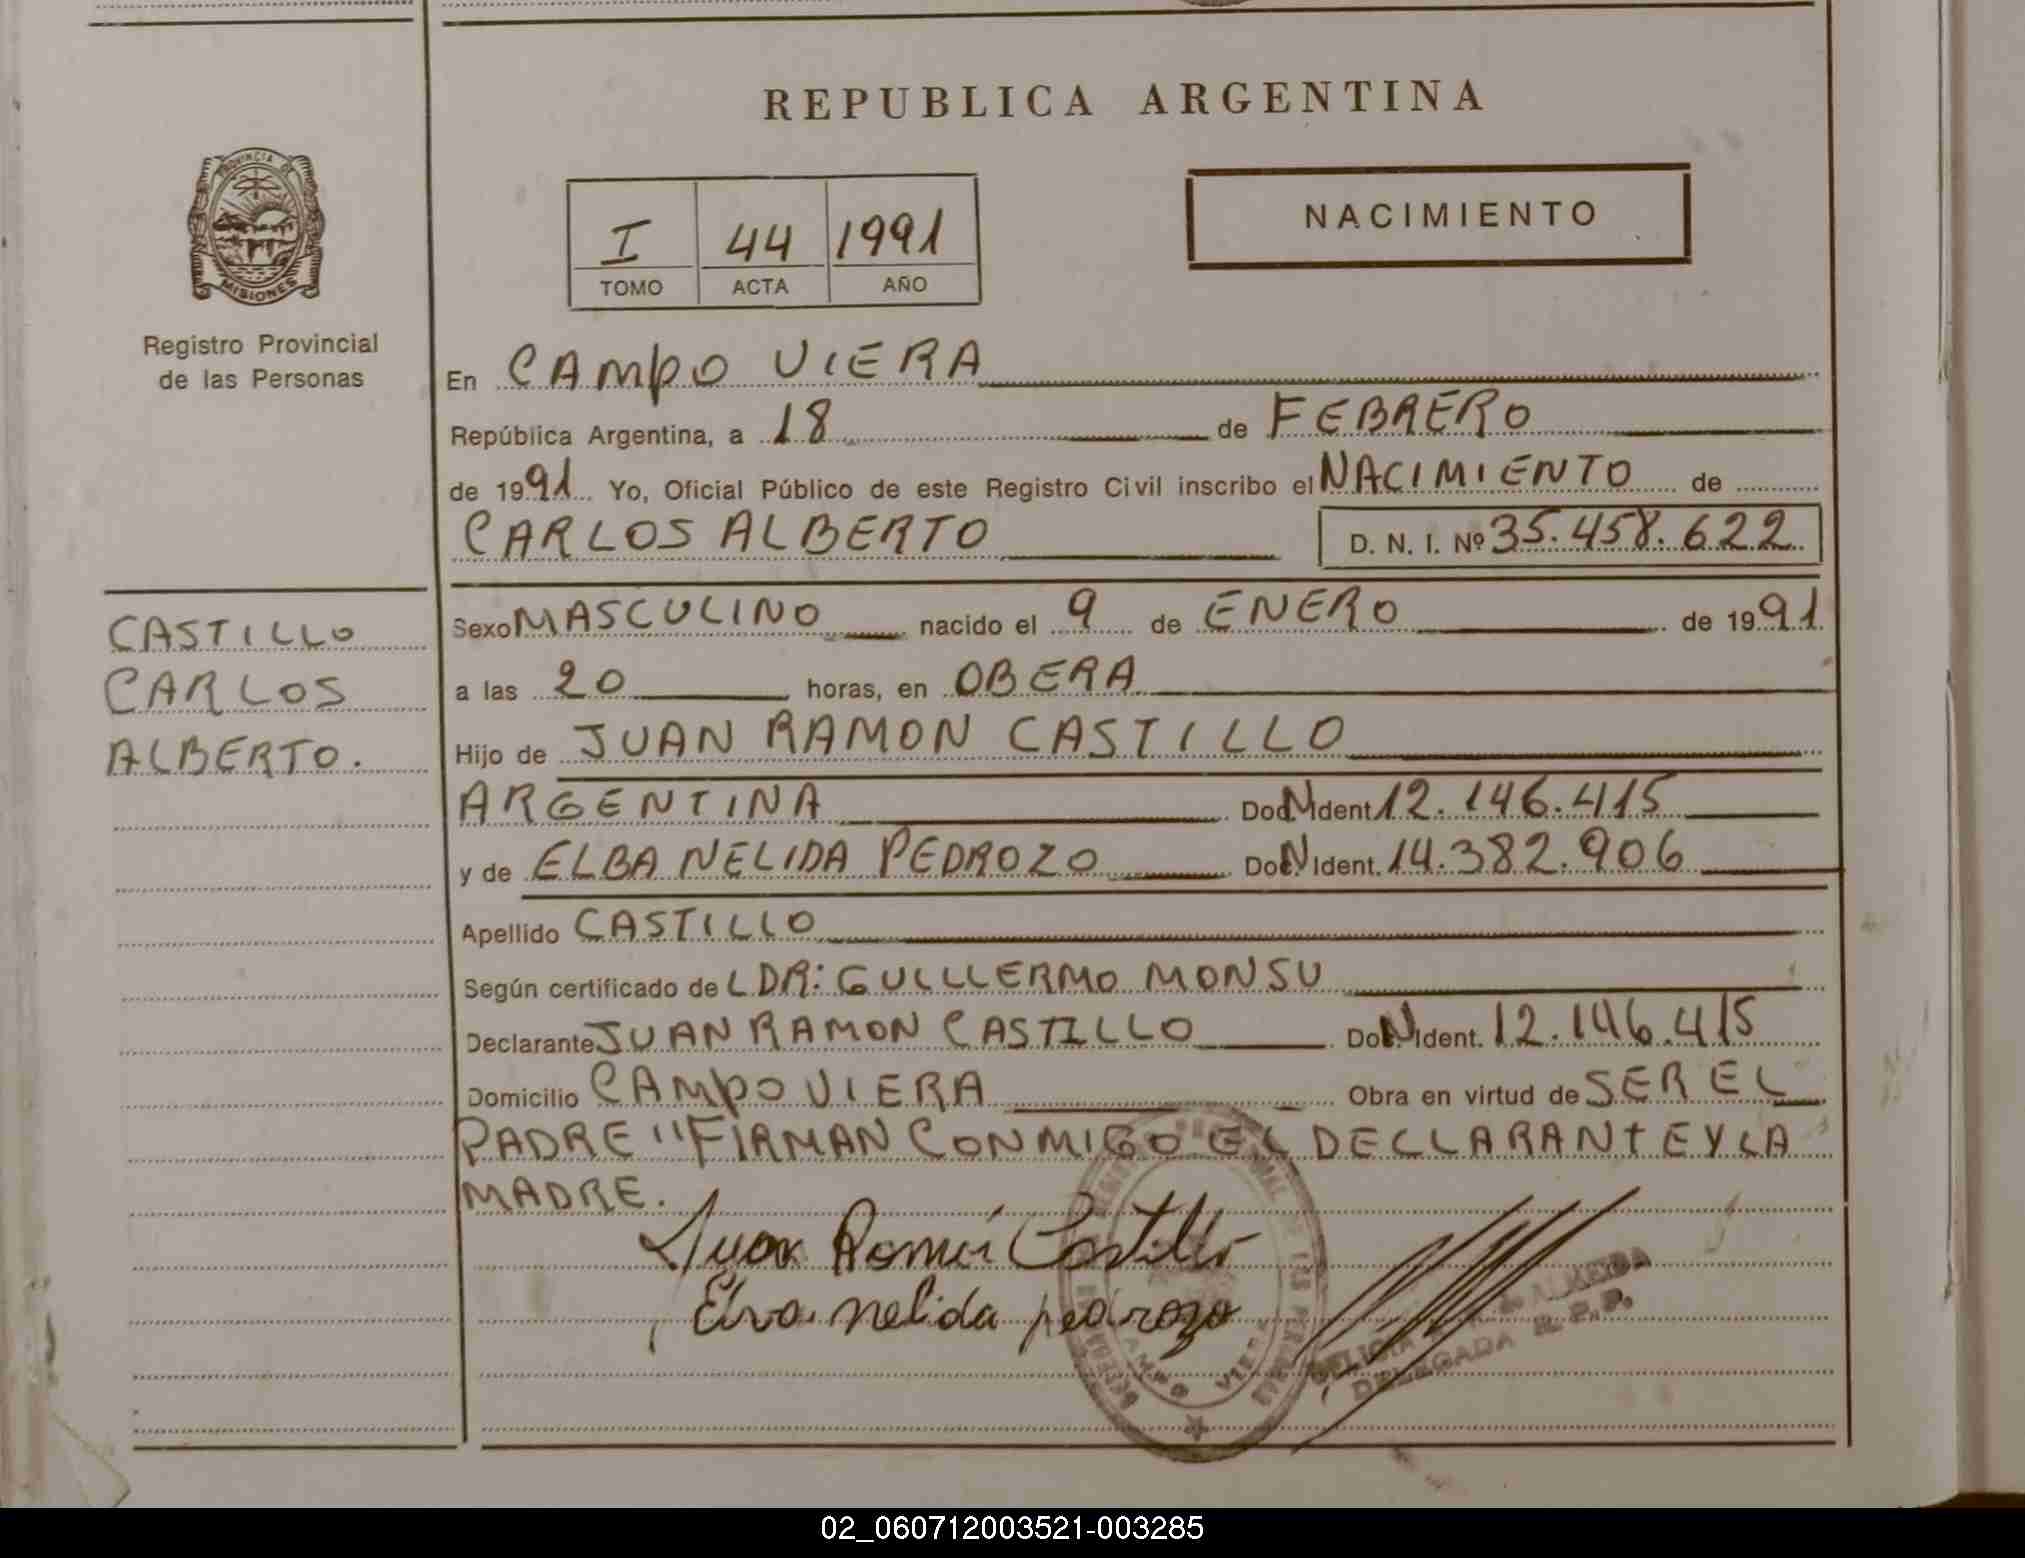 REPUBLICA ARGENTINA
PROVINCIA DE
MISIONES
Registro Provincial
de las Personas
I 44 1991
TOMO ACTA AÑO
NACIMIENTO
En CAMPO VIERA
República Argentina, a 18 de FEBRERO
de 1991 Yo, Oficial Público de este Registro Civil inscribo el NACIMIENTO de
CARLOS ALBERTO D. N. I. Nº 35.458.622
CASTILLO
CARLOS
ALBERTO.
Sexo MASCULINO nacido el 9 de ENERO de 1991
a las 20 horas, en OBERA
Hijo de JUAN RAMON CASTILLO
ARGENTINA Doc N Ident 12.146.415
y de ELBA NELIDA PEDROZO Doc N Ident. 14.382.906
Apellido CASTILLO
Según certificado de L DR: GULLLERMO MONSU
Declarante JUAN RAMON CASTILLO Doc N Ident. 12.146.415
Domicilio CAMPO VIERA Obra en virtud de SER EL
PADRE "FIRMAN CONMIGO EL DECLARANTE Y LA
MADRE.
Juan Ramón Castillo
Elva nelida pedrozo
CAMPO VIERA
DELEGADA R.P.P.
02_060712003521-003285